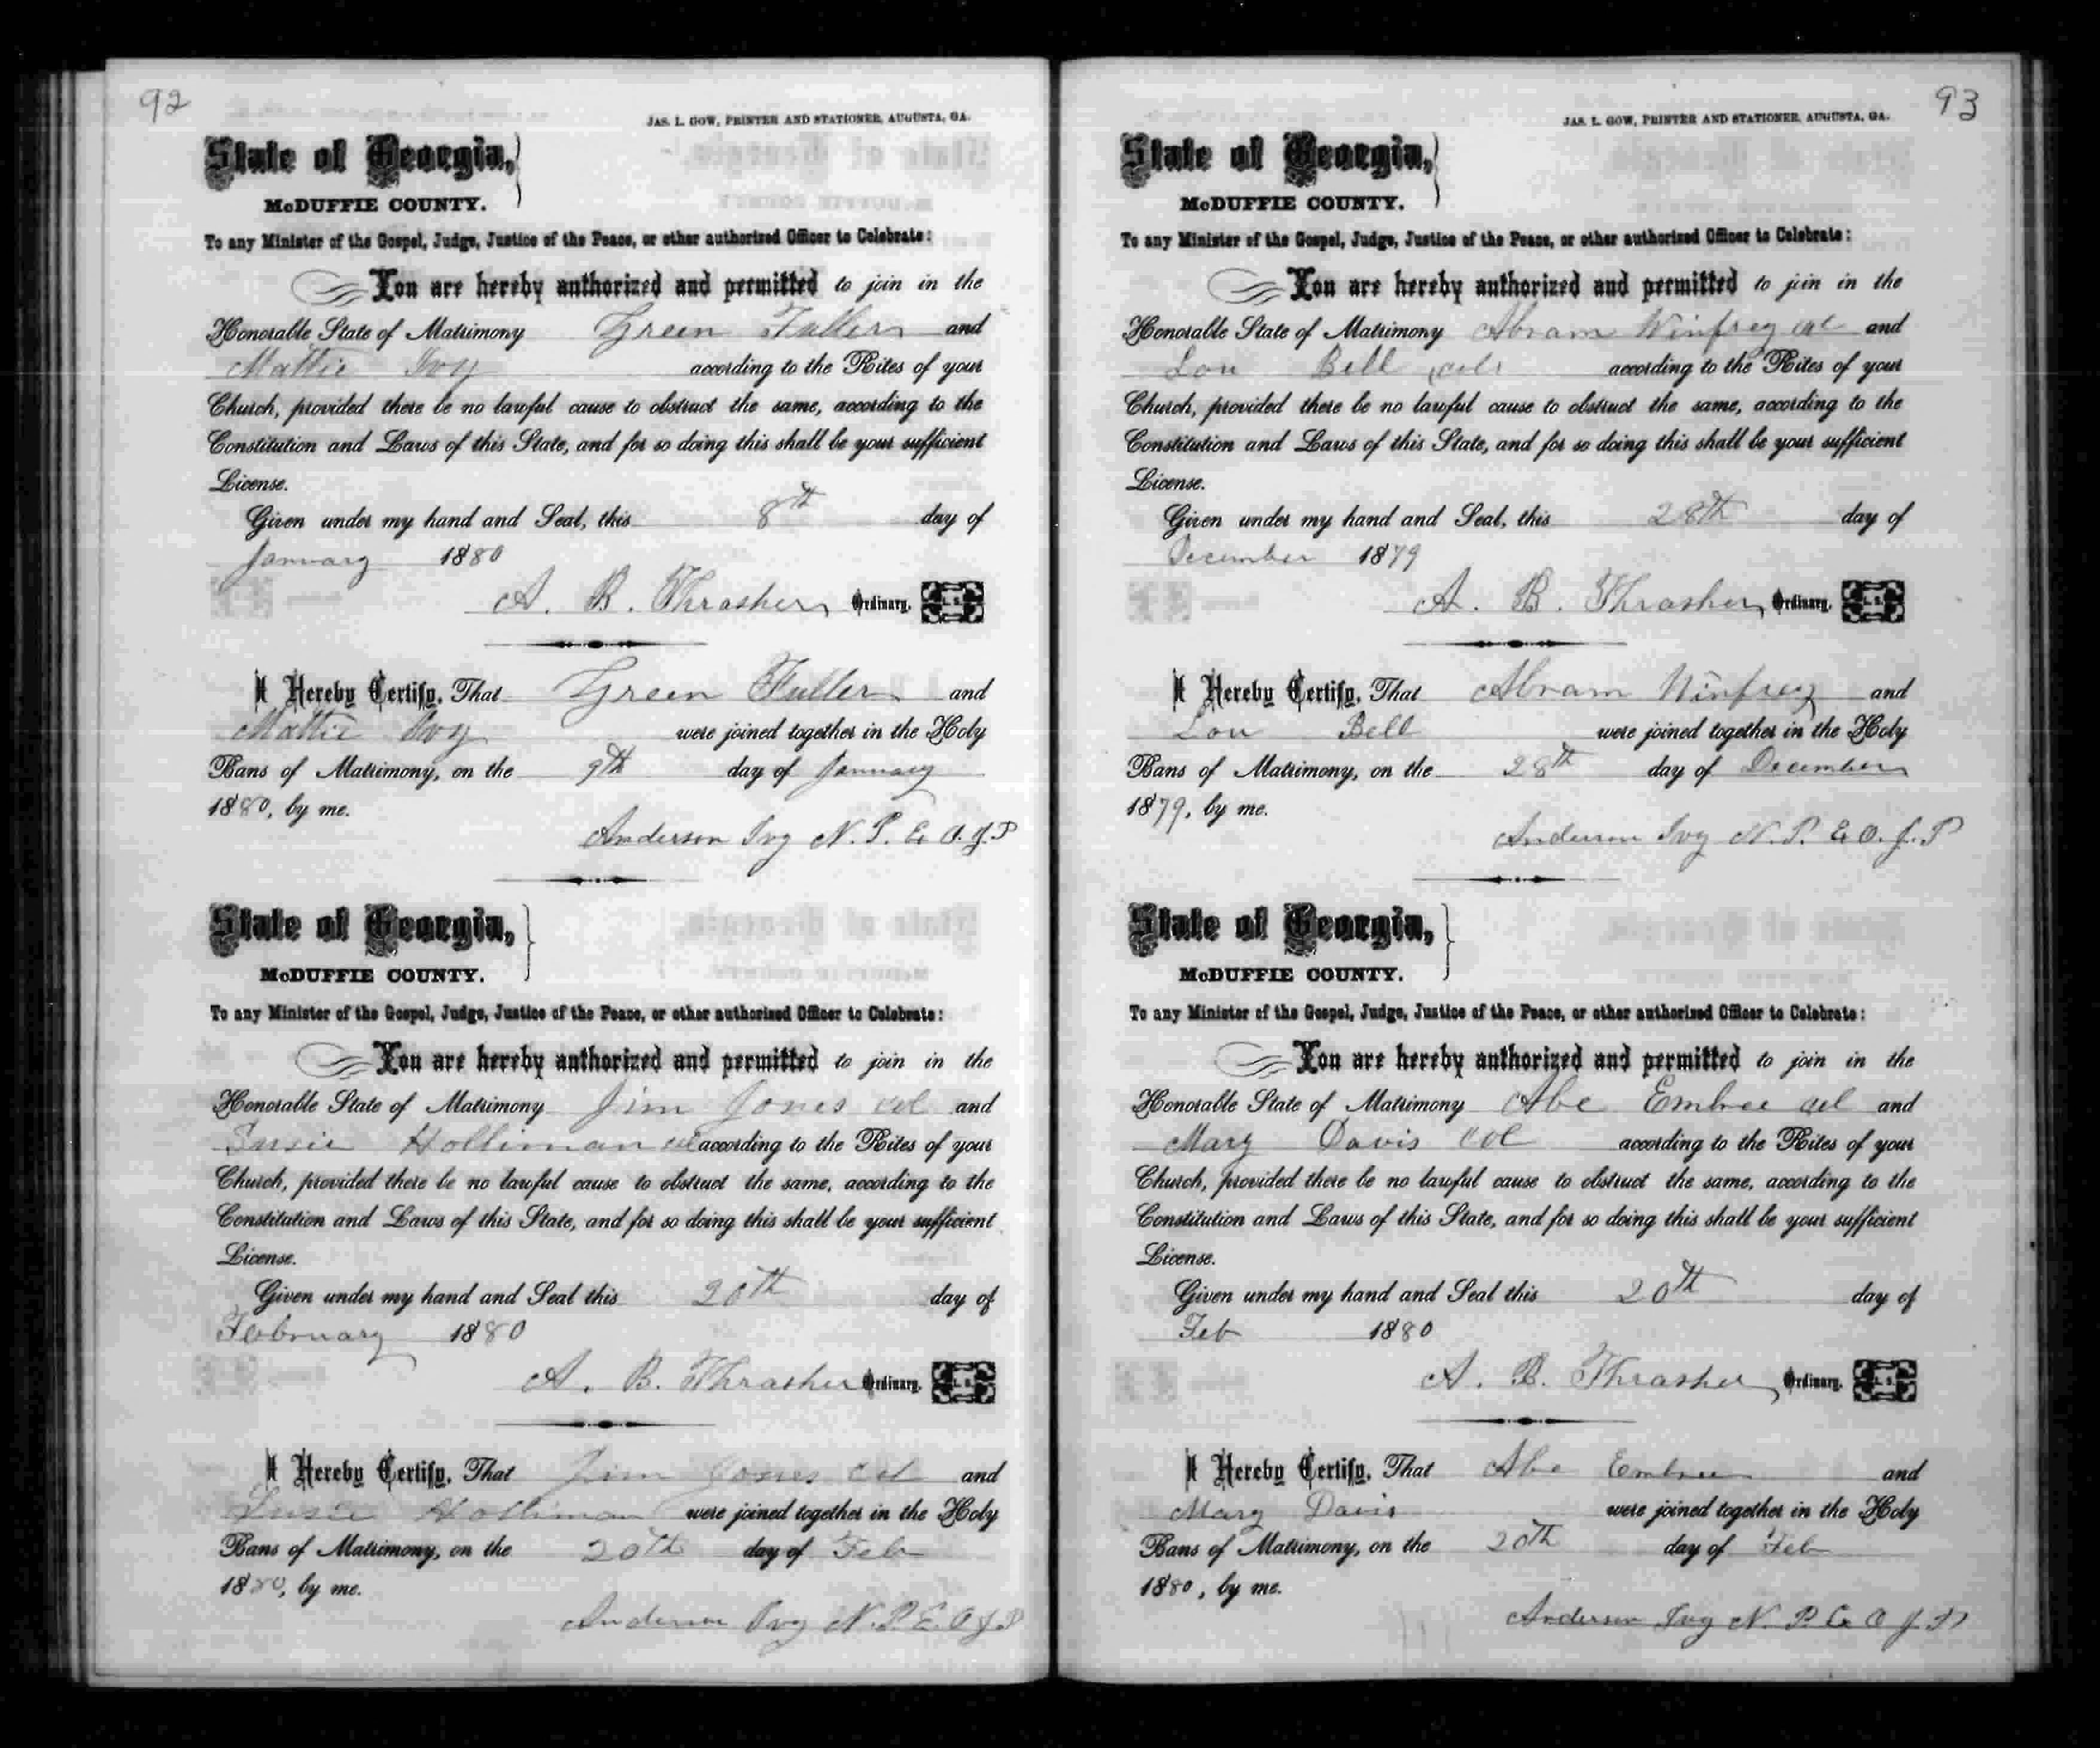 92
JAS. L. GOW, PRINTER AND STATIONER, AUGUSTA, GA.
State of Georgia,
McDUFFIE COUNTY.
To any Minister of the Gospel, Judge, Justice of the Peace, or other authorized Officer to Celebrate:
You are hereby authorized and permitted to join in the
Honorable State of Matrimony Green Fuller and
Mattie Ivy according to the Rites of your
Church, provided there be no lawful cause to obstruct the same, according to the
Constitution and Laws of this State, and for so doing this shall be your sufficient
License.
Given under my hand and Seal, this 8th day of
January 1880
A. B. Thrasher, Ordinary. L. S.
I Hereby Certify, That Green Fuller and
Mattie Ivy were joined together in the Holy
Bans of Matrimony, on the 9th day of January
1880, by me.
Anderson Ivy N. P. & O. J. P
State of Georgia,
McDUFFIE COUNTY.
To any Minister of the Gospel, Judge, Justice of the Peace, or other authorized Officer to Celebrate:
You are hereby authorized and permitted to join in the
Honorable State of Matrimony Jim Jones col and
Susie Holliman col according to the Rites of your
Church, provided there be no lawful cause to obstruct the same, according to the
Constitution and Laws of this State, and for so doing this shall be your sufficient
License.
Given under my hand and Seal this 20th day of
February 1880
A. B. Thrasher Ordinary. L. S.
I Hereby Certify, That Jim Jones col and
Susie Holliman were joined together in the Holy
Bans of Matrimony, on the 20th day of Feb
1880, by me.
Anderson Ivy N. P. E. O J. P
93
JAS. L. GOW, PRINTER AND STATIONER, AUGUSTA, GA.
State of Georgia,
McDUFFIE COUNTY.
To any Minister of the Gospel, Judge, Justice of the Peace, or other authorized Officer to Celebrate:
You are hereby authorized and permitted to join in the
Honorable State of Matrimony Abram Winfrey col and
Lou Bell col according to the Rites of your
Church, provided there be no lawful cause to obstruct the same, according to the
Constitution and Laws of this State, and for so doing this shall be your sufficient
License.
Given under my hand and Seal, this 28th day of
December 1879
A. B. Thrasher, Ordinary. L. S.
I Hereby Certify, That Abram Winfrey and
Lou Bell were joined together in the Holy
Bans of Matrimony, on the 28th day of December
1879, by me.
Anderson Ivy N. P. & O. J. P
State of Georgia,
McDUFFIE COUNTY.
To any Minister of the Gospel, Judge, Justice of the Peace, or other authorized Officer to Celebrate:
You are hereby authorized and permitted to join in the
Honorable State of Matrimony Abe Embree col and
Mary Davis col according to the Rites of your
Church, provided there be no lawful cause to obstruct the same, according to the
Constitution and Laws of this State, and for so doing this shall be your sufficient
License.
Given under my hand and Seal this 20th day of
Feb 1880
A. B. Thrasher, Ordinary. L. S.
I Hereby Certify, That Abe Embree and
Mary Davis were joined together in the Holy
Bans of Matrimony, on the 20th day of Feb
1880, by me.
Anderson Ivy N. P. & O J. P